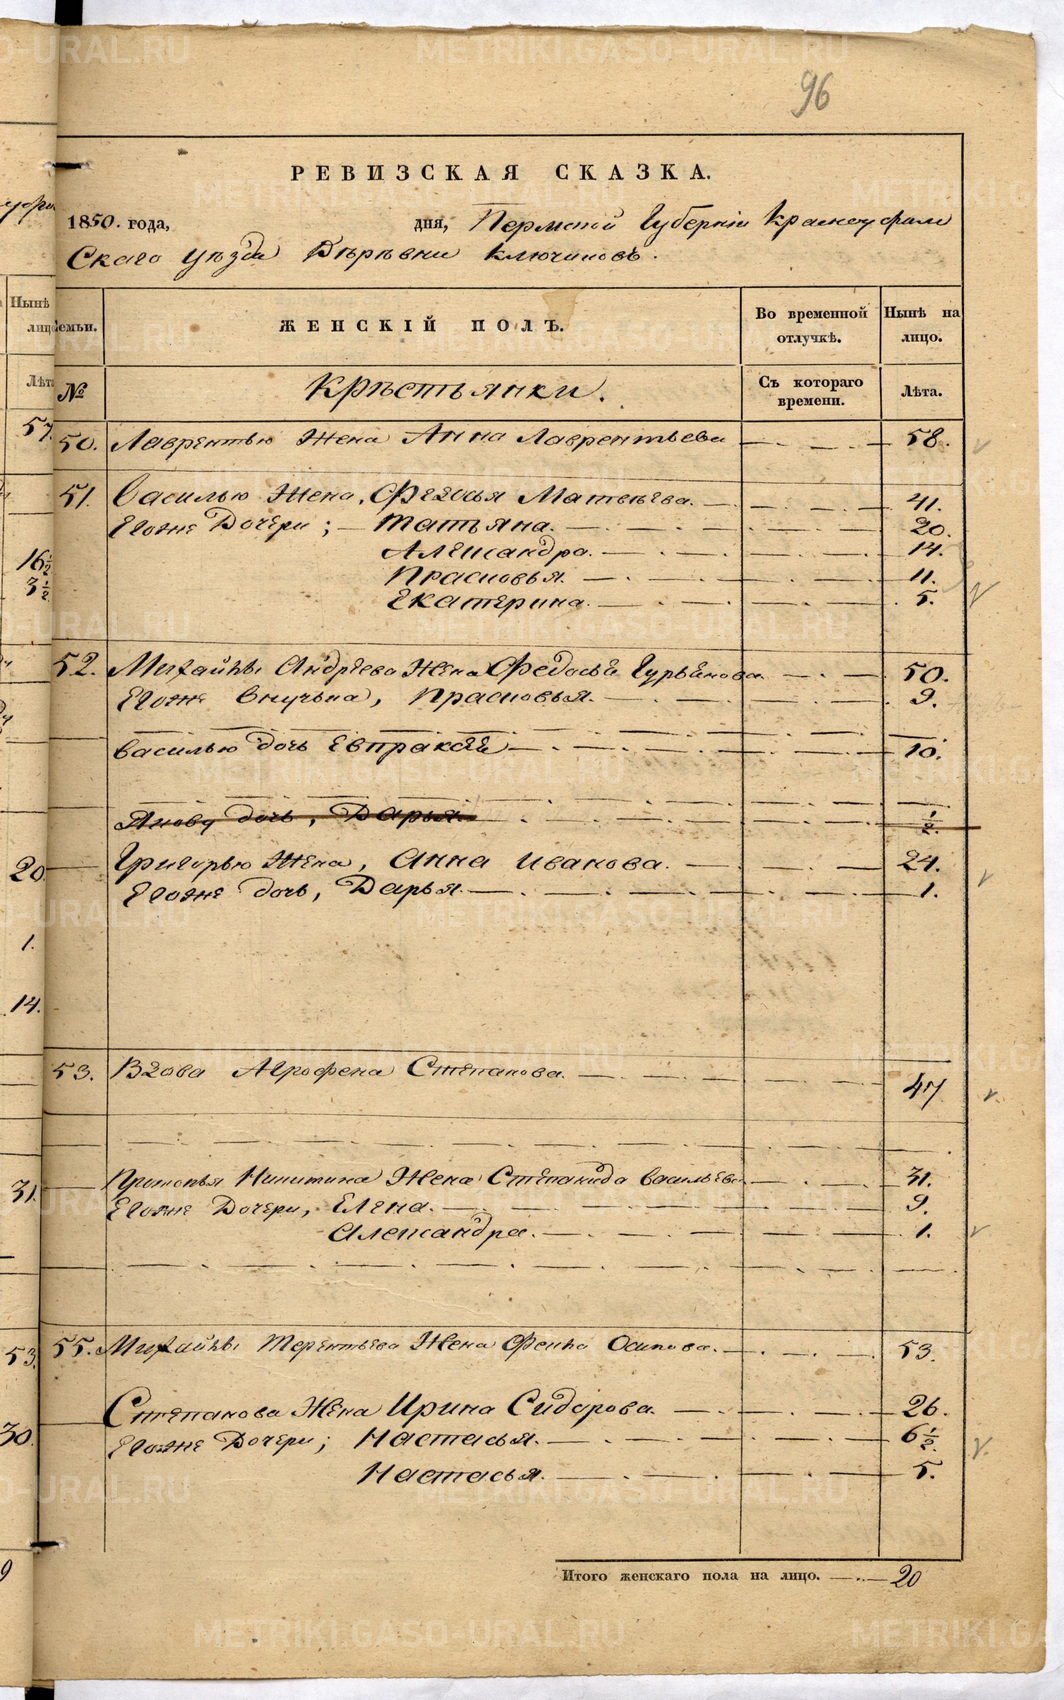 96
РЕВИЗСКАЯ СКАЗКА.
1850. года, дня, Пермской Губернiи Красноуфим
Скаго уѣзда Дѣрѣвни Ключиковъ.
Семьи. ЖЕНСКІЙ ПОЛЪ. Во временной отлучкѣ. Нынѣ на лицо.
№ Крѣстьянки. Съ котораго времени. Лѣта.
50. Лаврентью Жена Анна Лаврентьева 58.
51. Василью Жена, Федосья Матвѣева. 41.
Егоже Дочери; Татьяна. 20.
Александра. 14.
Прасковья. 11.
Екатерина. 5.
52. Михайлы Андрѣева Жена Федосья Гурьянова 50.
Егоже внучька, Прасковья. 9.
Василью дочь Евпраксiя 10.
Якову дочь, Дарья. 1/2.
Григорью Жена, Анна Иванова. 24.
Егоже дочь, Дарья. 1.
53. Вдова Агрофена Степанова. 47
Прокопья Никитина Жена Степанида Васильева 31.
Егоже Дочери, Елена. 9.
Александра. 1.
55. Михайлы Терентьева Жена Фекла Осипова. 53.
Степанова Жена Ирина Сидорова. 26.
Егоже Дочери; Настасья. 6 1/2.
Настасья. 5.
Итого женскаго пола на лицо. 20
Нынѣ
лиц
Лѣта
57.
16 1/2
3 1/2
20.
1.
14.
31.
53.
30.
9
METRIKI.GASO-URAL.RU